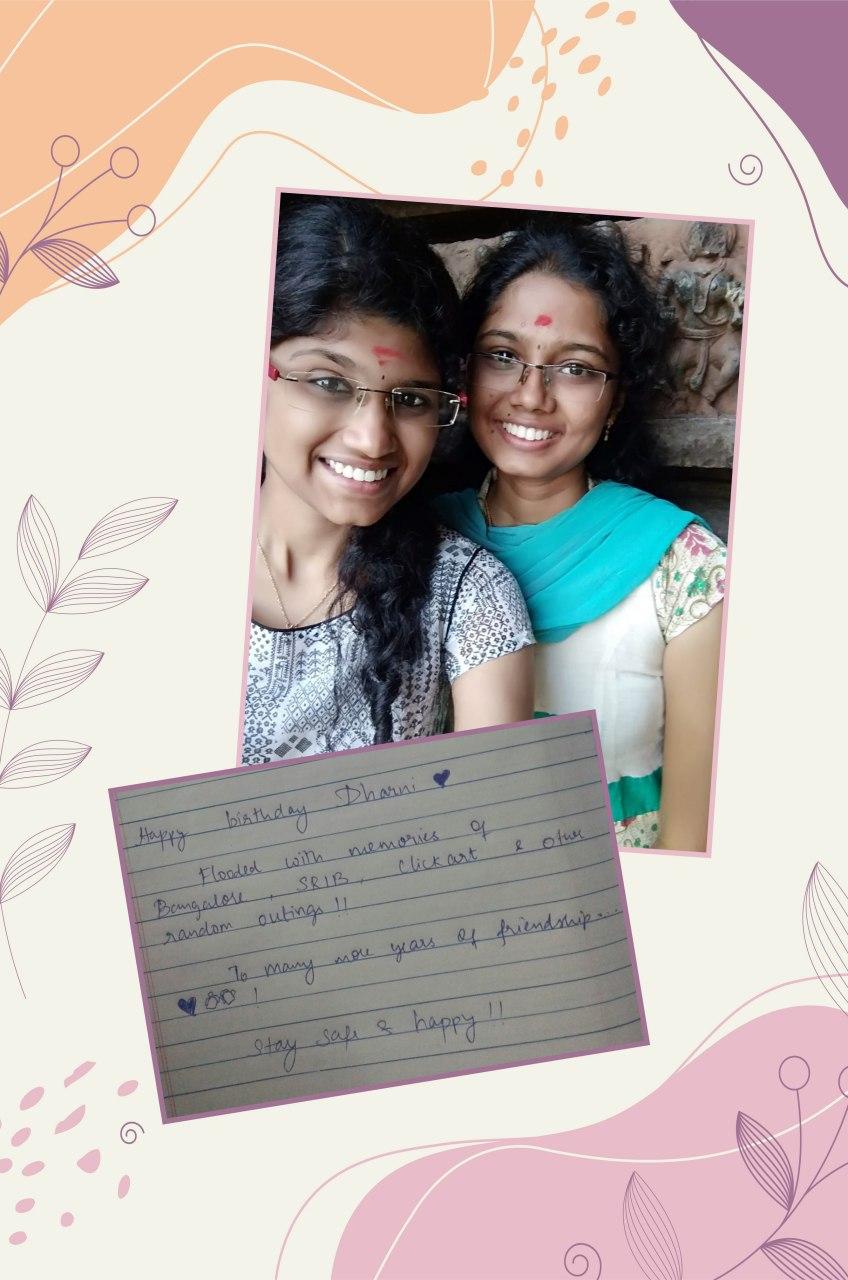 Happy birthday Dharni ♥
Flooded with memories of
Bangalore, SRIB, Clickart & other
random outings !!
To many more years of friendship...
♥ !
Stay safe & happy !!